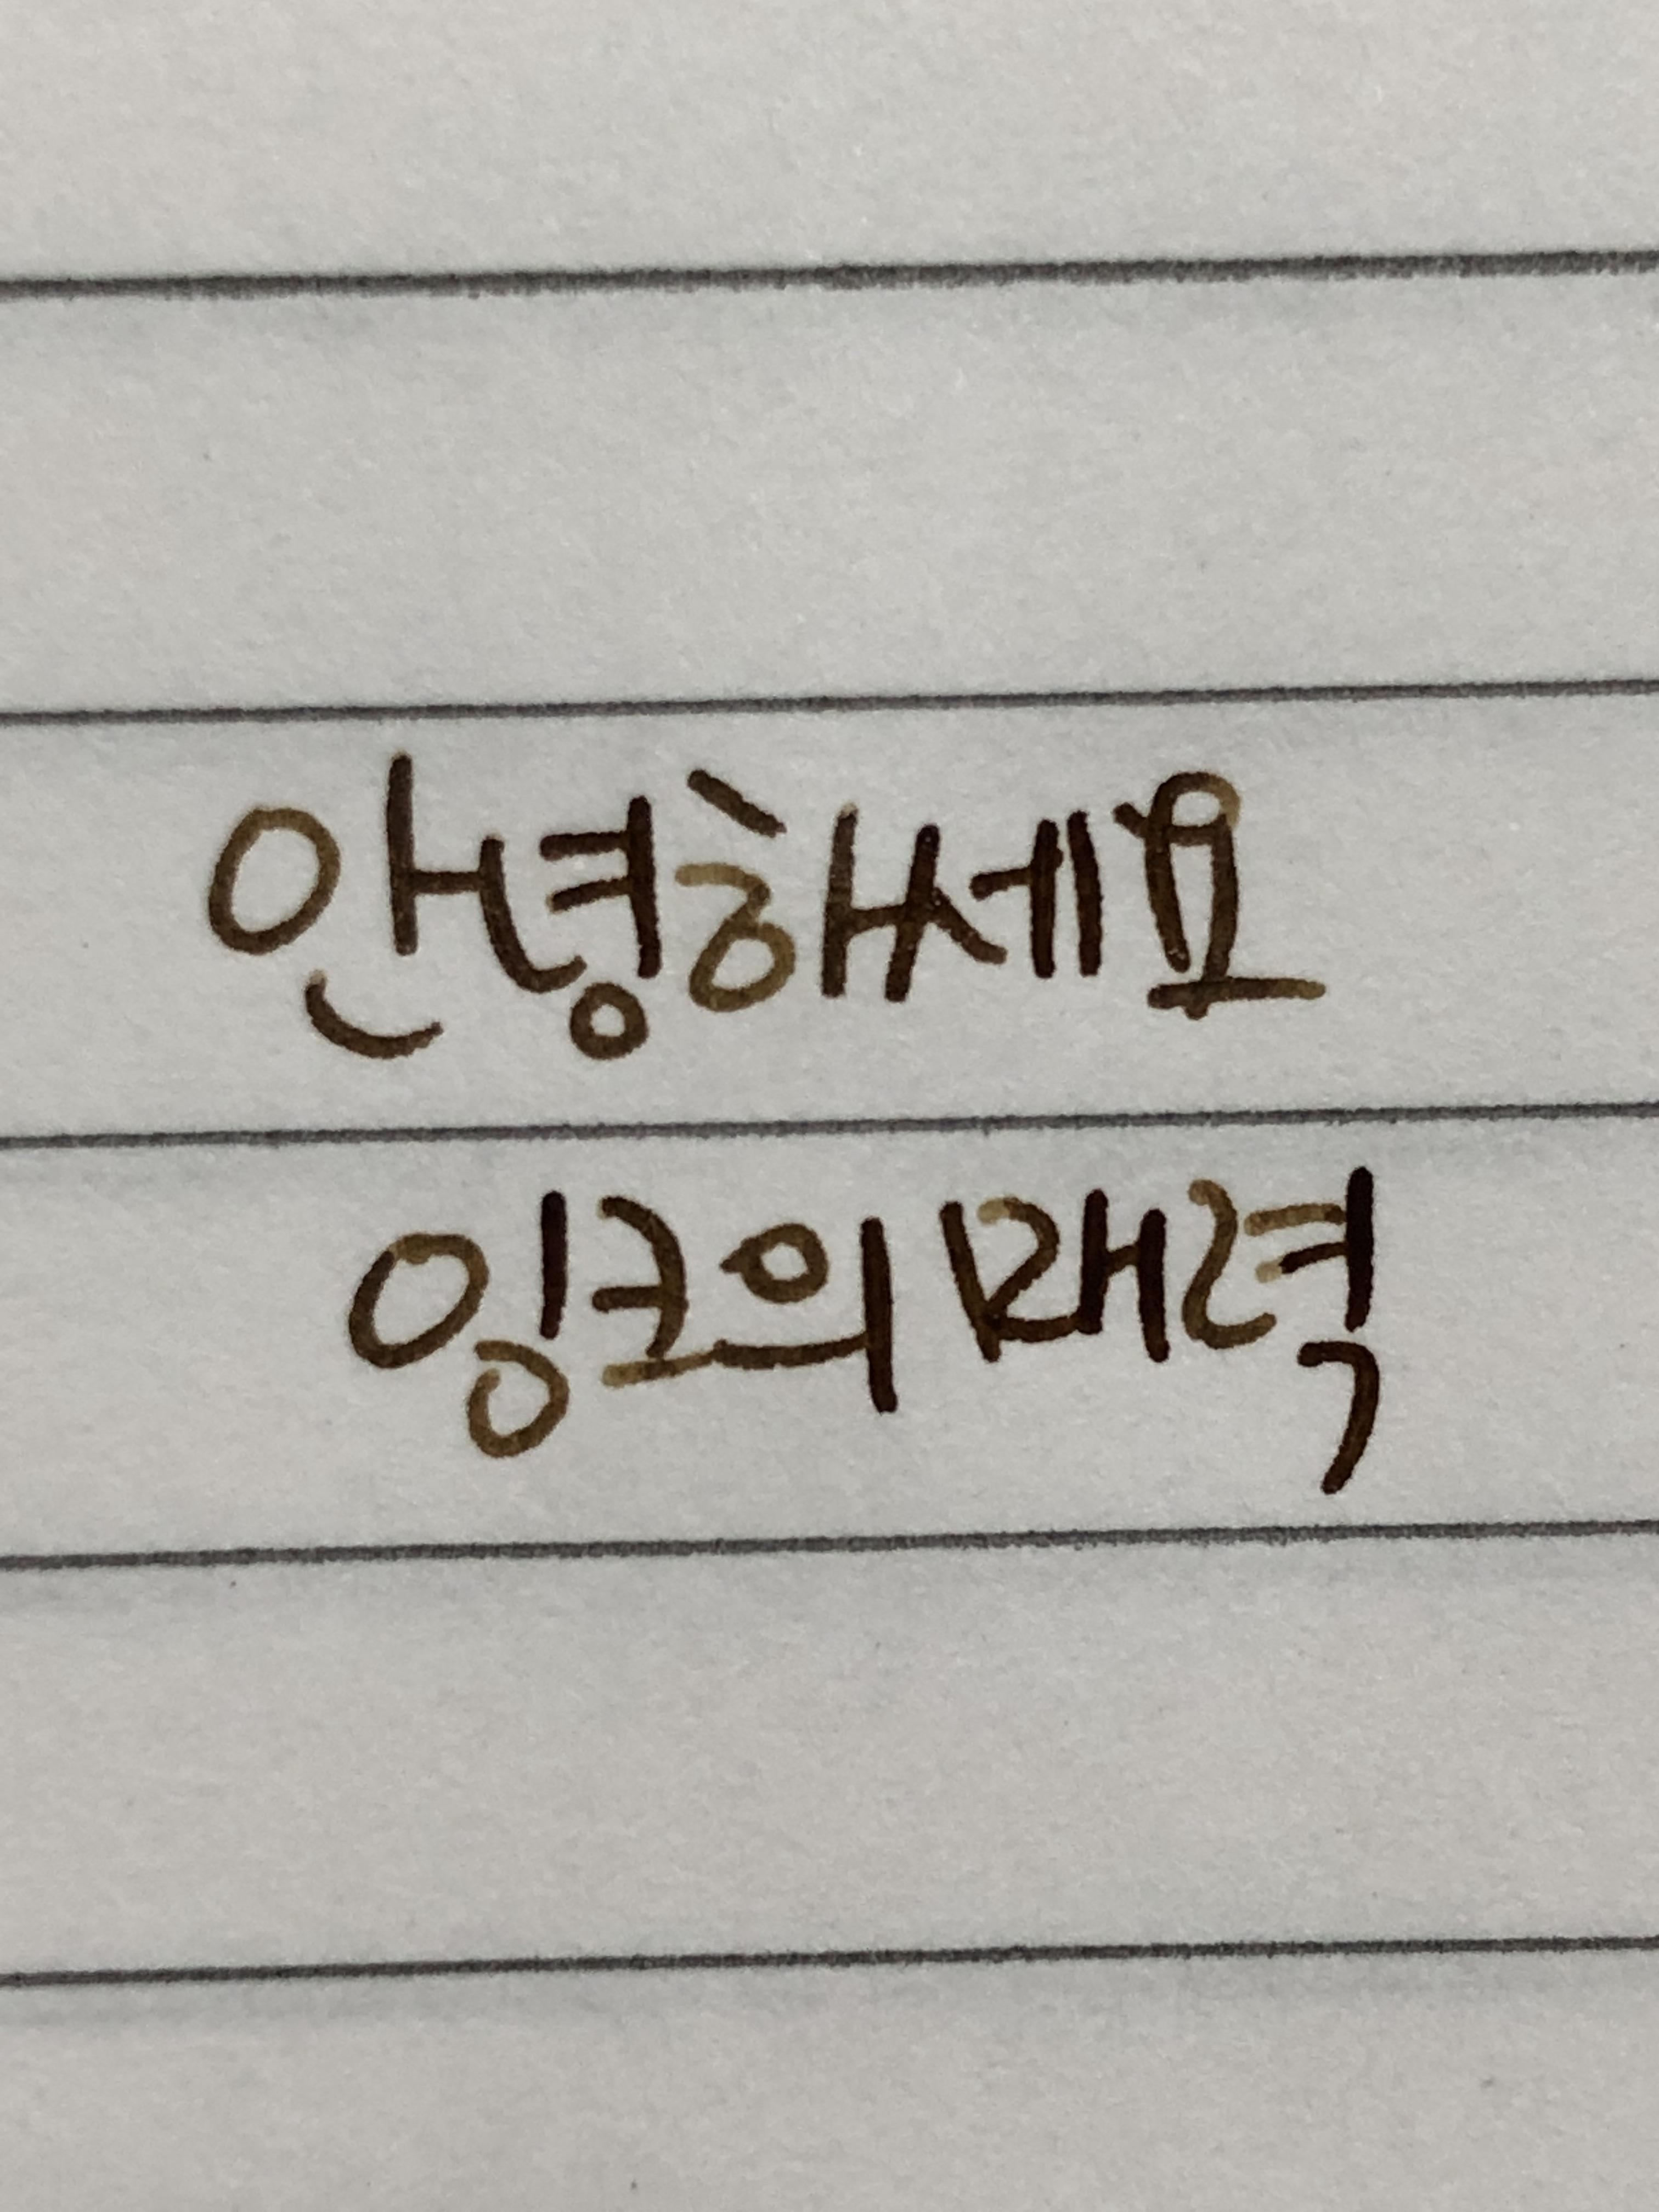 안녕하세요
잉크의 매력